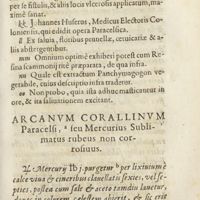 per se fistulis, & aliis locis vlcerosis applicatum, maximè sanat.
kk Johannes Huserus, Medicus Electoris Coloniensis, qui edidit opera Paracelsica.
ll Ex taluia, floribus pruneliæ, certuaric & aliis abstergentibus.
mm Omnium optimè exhiberi potest cum Resina scammonij ritè præparata, de qua infra.
nn Quale est extractum Panchymagogon vegetabile, cuius descriptio infra tradetur.
oo Non probo, quia ista adhuc masticentur in ore, & ita saliuationem excitant.
ARCANVM CORALLINVM
Paracelsi, a seu Mercurius Sublimatus rubeus non corrosiuus.
℞ Mercurij ℔ j. purgetur b per lixiuium è
calce viua & cineribus clauellatis sexies, vel septies,
postea cum sale & aceto tamdiu lauetur,
donec in colorem cælestem abierit, & sic